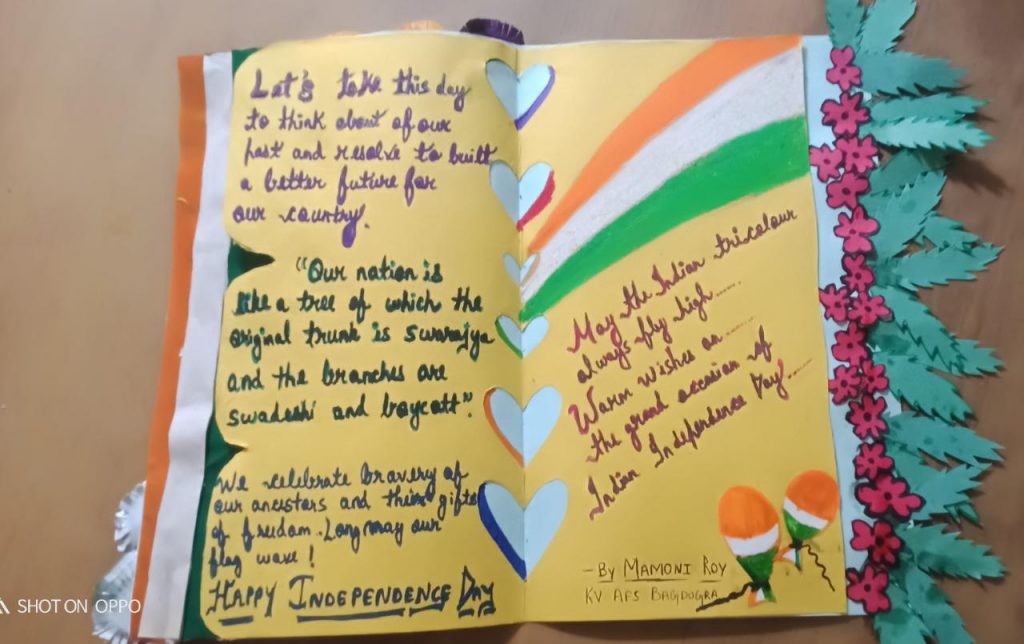 Let's take this day
to think about of our
past and resolve to built
a better future for
our country.
"Our nation is
like a tree of which the
original trunk is swarajya
and the branches are
swadeshi and boycott".
We celebrate bravery of
our ancestors and their gifts
of freedom. Long may our
flag wave!
HAPPY INDEPENDENCE DAY
May the Indian tricolour
always fly high......
Warm wishes on.......
the grand occasion of
Indian Independence Day......
- By MAMONI ROY
KV AFS BAGDOGRA
SHOT ON OPPO